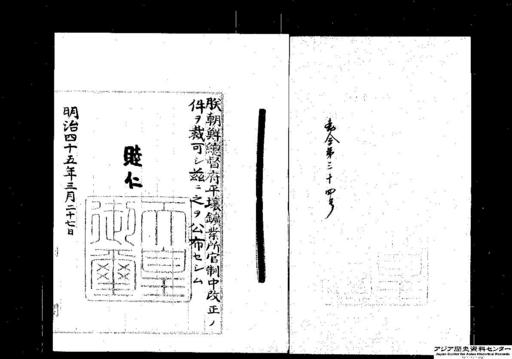 勅令第三十四号
朕朝鮮總督府平壤鑛業所官制中改正ノ
件ヲ裁可シ茲ニ之ヲ公布セシム
睦仁
天皇御璽
明治四十五年三月二十七日
アジア歴史資料センター
Japan Center for Asian Historical Records